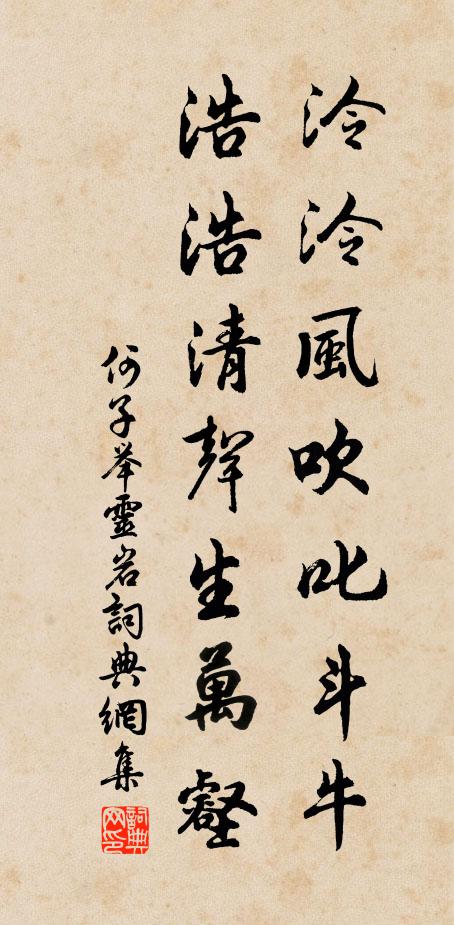 泠泠風吹叱斗牛
浩浩清聲生萬壑
何子举靈岩詞典網集
詞典網印